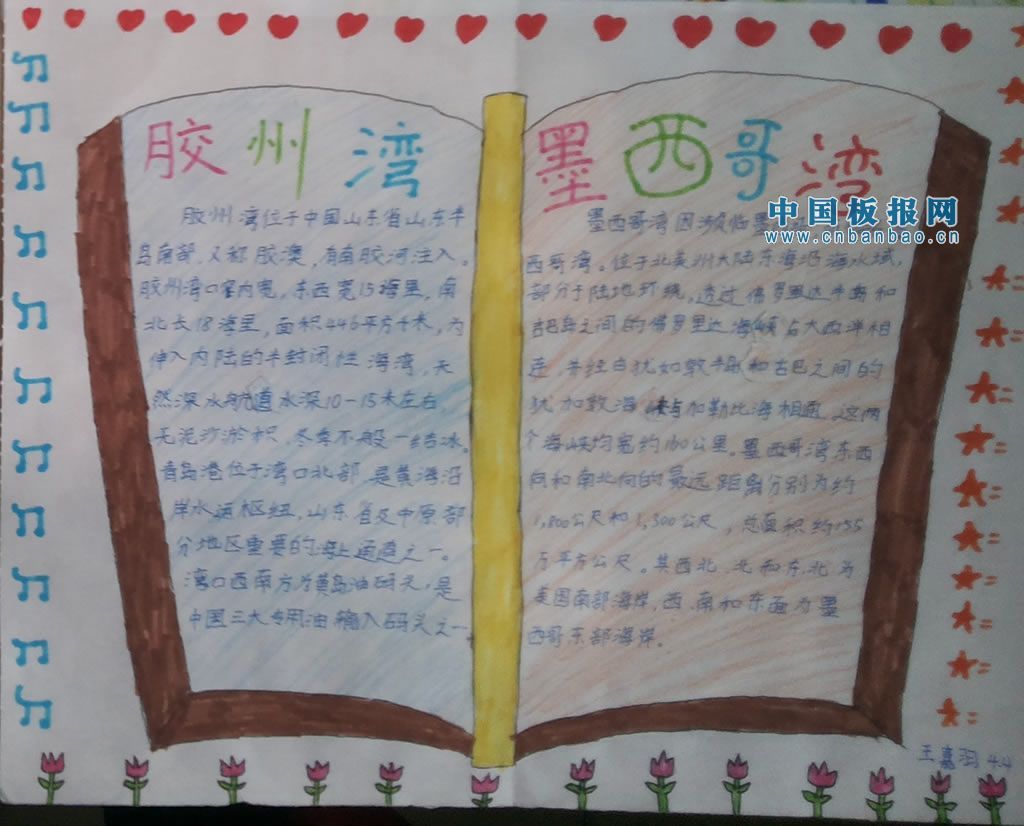 胶州湾
胶州湾位于中国山东省山东半
岛南部,又称胶澳,有南胶河注入。
胶州湾口窄内宽,东西宽15海里,南
北长18海里,面积446平方千米,为
伸入内陆的半封闭性海湾,天
然深水航道水深10-15米左右,
无泥沙淤积,冬季不般一结冰。
青岛港位于湾口北部,是黄海沿
岸水运枢纽,山东省及中原部
分地区重要的海上通道之一。
湾口西南方为黄岛油码头,是
中国三大专用油输入码头之一
墨西哥湾
墨西哥湾因濒临墨
西哥湾。位于北美州大陆东海沿海水域,
部分于陆地环绕,透过佛罗里达半岛和
古巴岛之间的佛罗里达海峡与大西洋相
连,并经由犹加敦半岛和古巴之间的
犹加敦海峡与加勒比海相通,这两
个海峡均宽约160公里。墨西哥湾东西
向和南北向的最远距离分别为约
1,800公尺和1,300公尺,总面积约155
万平方公尺。其西北、北和东北为
美国南部海岸,西、南和东面为墨
西哥东部海岸。
王嘉羽 4.4
中国板报网
www.cnbanbao.cn